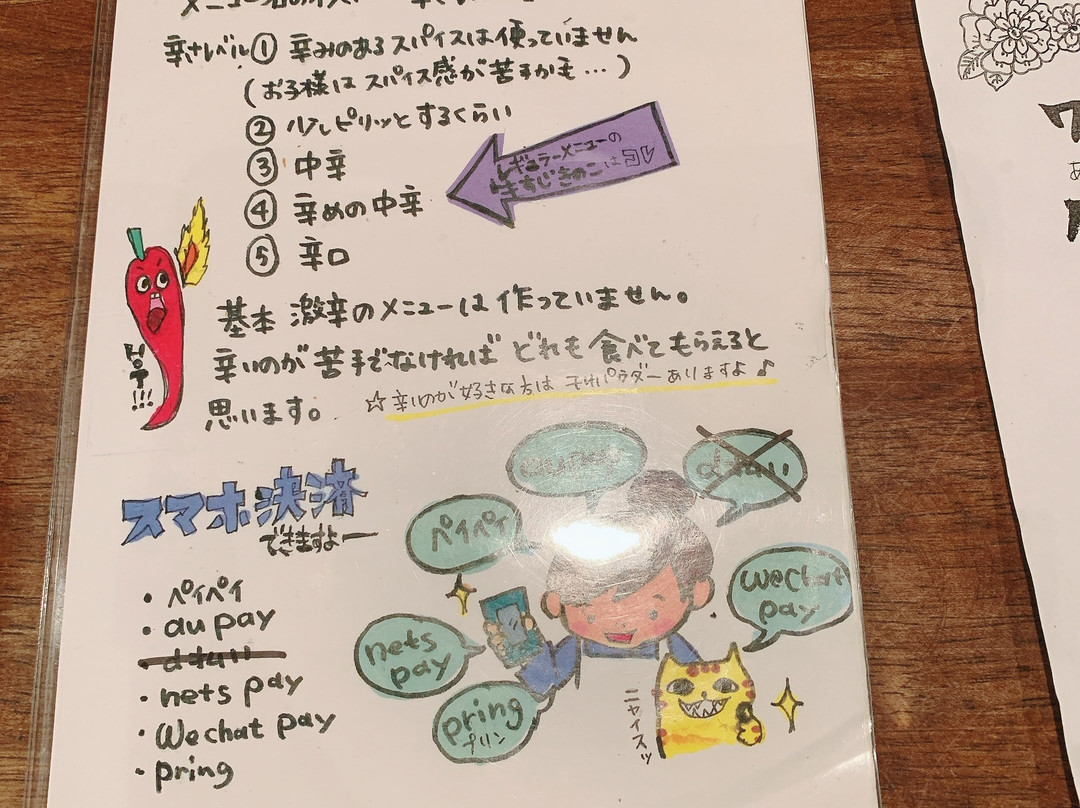 辛さレベル① 辛みのあるスパイスは使っていません
(お子様はスパイス感が苦手かも…)
② 少しピリッとするくらい
③ 中辛
④ 辛めの中辛
レギュラーメニューの
牛すじきのこはコレ
⑤ 辛口
基本 激辛のメニューは作っていません。
辛いのが苦手でなければどれも食べてもらえると
思います。
☆辛いのが好きな方は 辛パウダーありますよ♪
HOT!!!
スマホ決済
できますよー
・ペイペイ
・au pay
・d払い
・nets pay
・Wechat pay
・pring
au pay
d払い
ペイペイ
Wechat
pay
nets
pay
pring
プリン
ニャイスッ